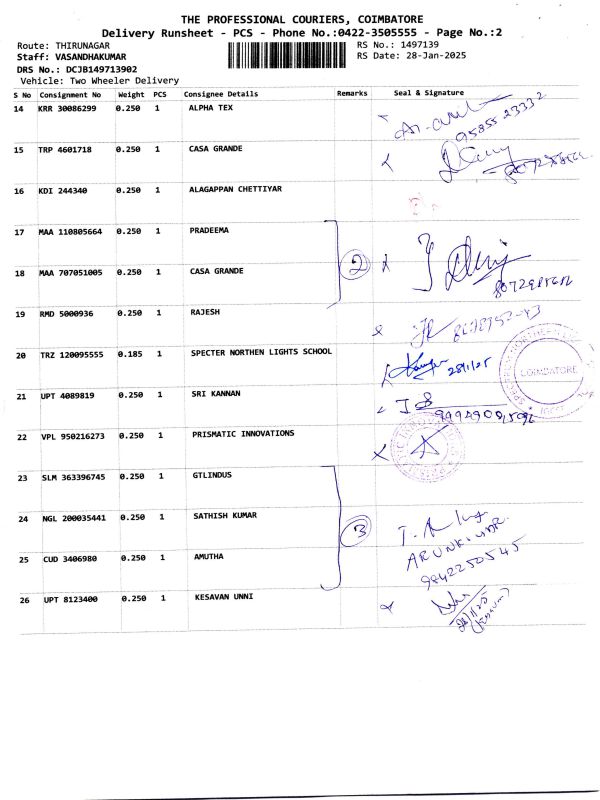 THE PROFESSIONAL COURIERS, COIMBATORE
Delivery Runsheet - PCS - Phone No.:0422-3505555 - Page No.:2
Route: THIRUNAGAR
RS No.: 1497139
Staff: VASANDHAKUMAR
RS Date: 28-Jan-2025
DRS No.: DCJB149713902
Vehicle: Two Wheeler Delivery
S No Consignment No Weight PCS Consignee Details Remarks Seal & Signature
14 KRR 30086299 0.250 1 ALPHA TEX
9585523332
15 TRP 4601718 0.250 1 CASA GRANDE
16 KDI 244340 0.250 1 ALAGAPPAN CHETTIYAR
17 MAA 110805664 0.250 1 PRADEEMA
2
18 MAA 707051005 0.250 1 CASA GRANDE
19 RMD 5000936 0.250 1 RAJESH
20 TRZ 120095555 0.185 1 SPECTER NORTHEN LIGHTS SCHOOL
28/1/25
COIMBATORE
21 UPT 4089819 0.250 1 SRI KANNAN
22 VPL 950216273 0.250 1 PRISMATIC INNOVATIONS
23 SLM 363396745 0.250 1 GTLINDUS
24 NGL 200035441 0.250 1 SATHISH KUMAR
3
ARUNKUMAR
25 CUD 3406980 0.250 1 AMUTHA
9842250545
26 UPT 8123400 0.250 1 KESAVAN UNNI